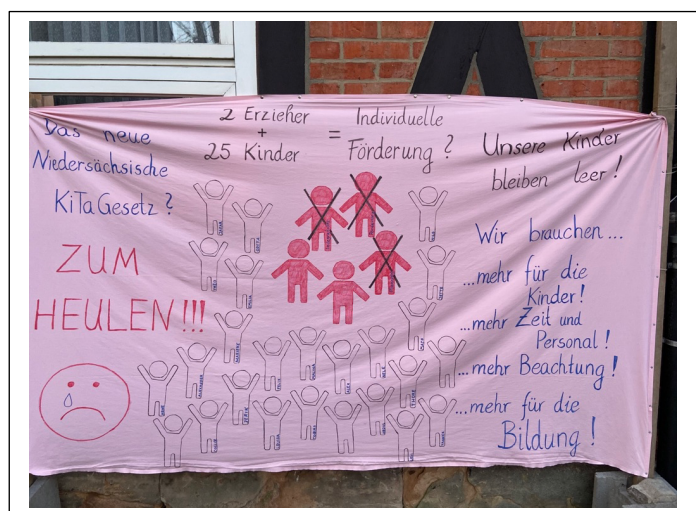 Das neue
Niedersächsische
KiTaGesetz?
ZUM
HEULEN!!!
2 Erzieher
+
25 Kinder
= Individuelle
Förderung?
Unsere Kinder
bleiben leer!
Wir brauchen...
...mehr für die
Kinder!
...mehr Zeit und
Personal!
...mehr Beachtung!
...mehr für die
Bildung!